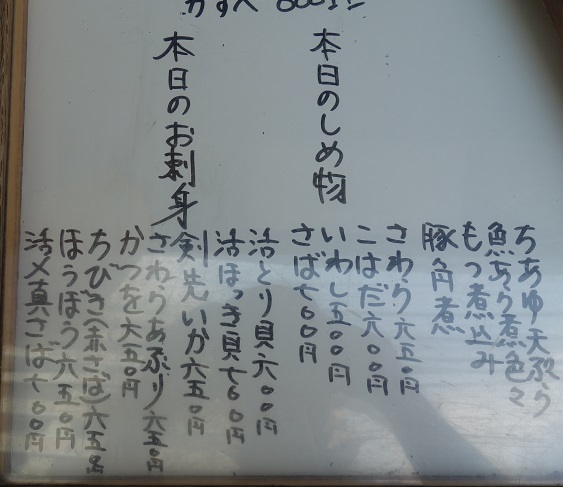 ちあゆ天ぷら
魚あら煮色々
もつ煮込み
豚角煮
本日のしめ物
さわら六五〇円
こはだ六〇〇円
いわし五〇〇円
さば七〇〇円
活とり貝六〇〇円
活ほっき貝七〇〇円
本日のお刺身
剣先いか六五〇円
さわらあぶり六五〇円
かつを六五〇円
ちびき(赤さば)六五〇円
ほうぼう六五〇円
活〆真さば七〇〇円